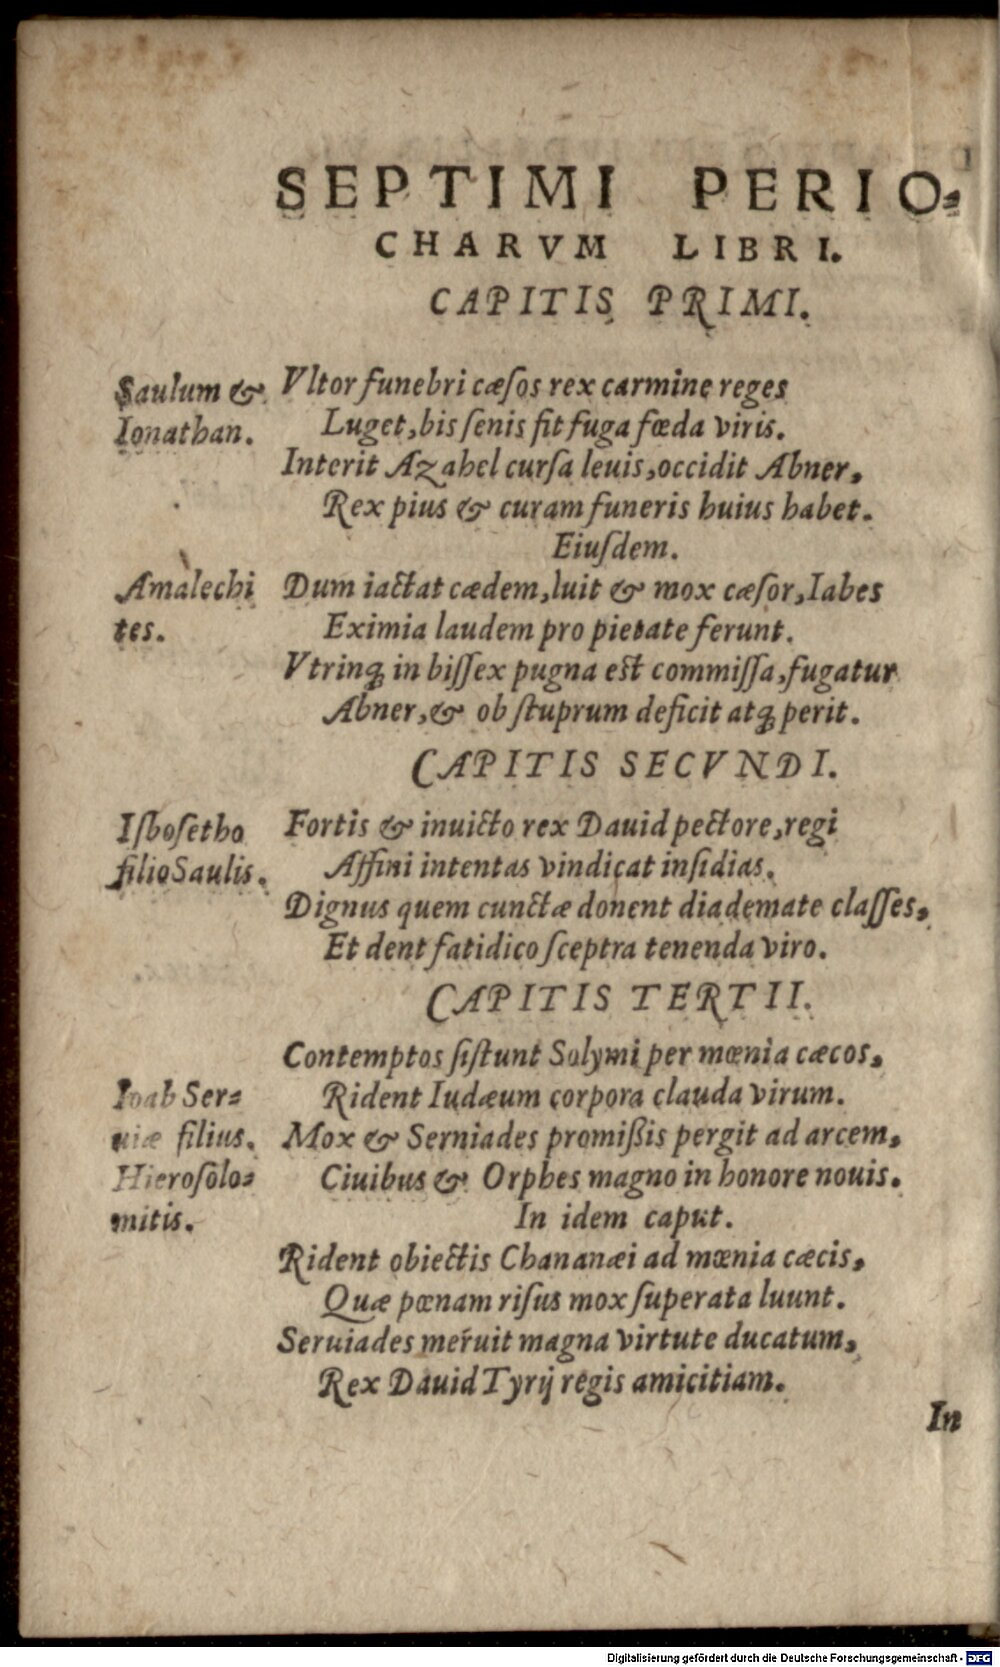 SEPTIMI PERIO-
CHARVM LIBRI.
CAPITIS PRIMI.
Saulum &
Ionathan.
Vltor funebri cæſos rex carmine reges
Luget, bis ſenis fit fuga fœda viris.
Interit Azahel curſa leuis, occidit Abner,
Rex pius & curam funeris huius habet.
Eiuſdem.
Amalechi
tes.
Dum iactat cædem, luit & mox cæſor, Iabes
Eximia laudem pro pietate ferunt.
Vtrinq; in biſſex pugna est commiſſa, fugatur
Abner, & ob ſtuprum deficit atq; perit.
CAPITIS SECVNDI.
Iſboſetho
filio Saulis.
Fortis & inuicto rex Dauid pectore, regi
Affini intentas vindicat inſidias.
Dignus quem cunctæ donent diademate claſſes,
Et dent fatidico ſceptra tenenda viro.
CAPITIS TERTII.
Contemptos ſiſtunt Solymi per mœnia cæcos,
Rident Iudæum corpora clauda virum.
Ioab Ser-
uiæ filius.
Hieroſolo-
mitis.
Mox & Serniades promißis pergit ad arcem,
Ciuibus & Orphes magno in honore nouis.
In idem caput.
Rident obiectis Chananæi ad mœnia cæcis,
Quæ pœnam riſus mox ſuperata luunt.
Seruiades meruit magna virtute ducatum,
Rex Dauid Tyrij regis amicitiam.
In
Digitalisierung gefördert durch die Deutsche Forschungsgemeinschaft - DFG